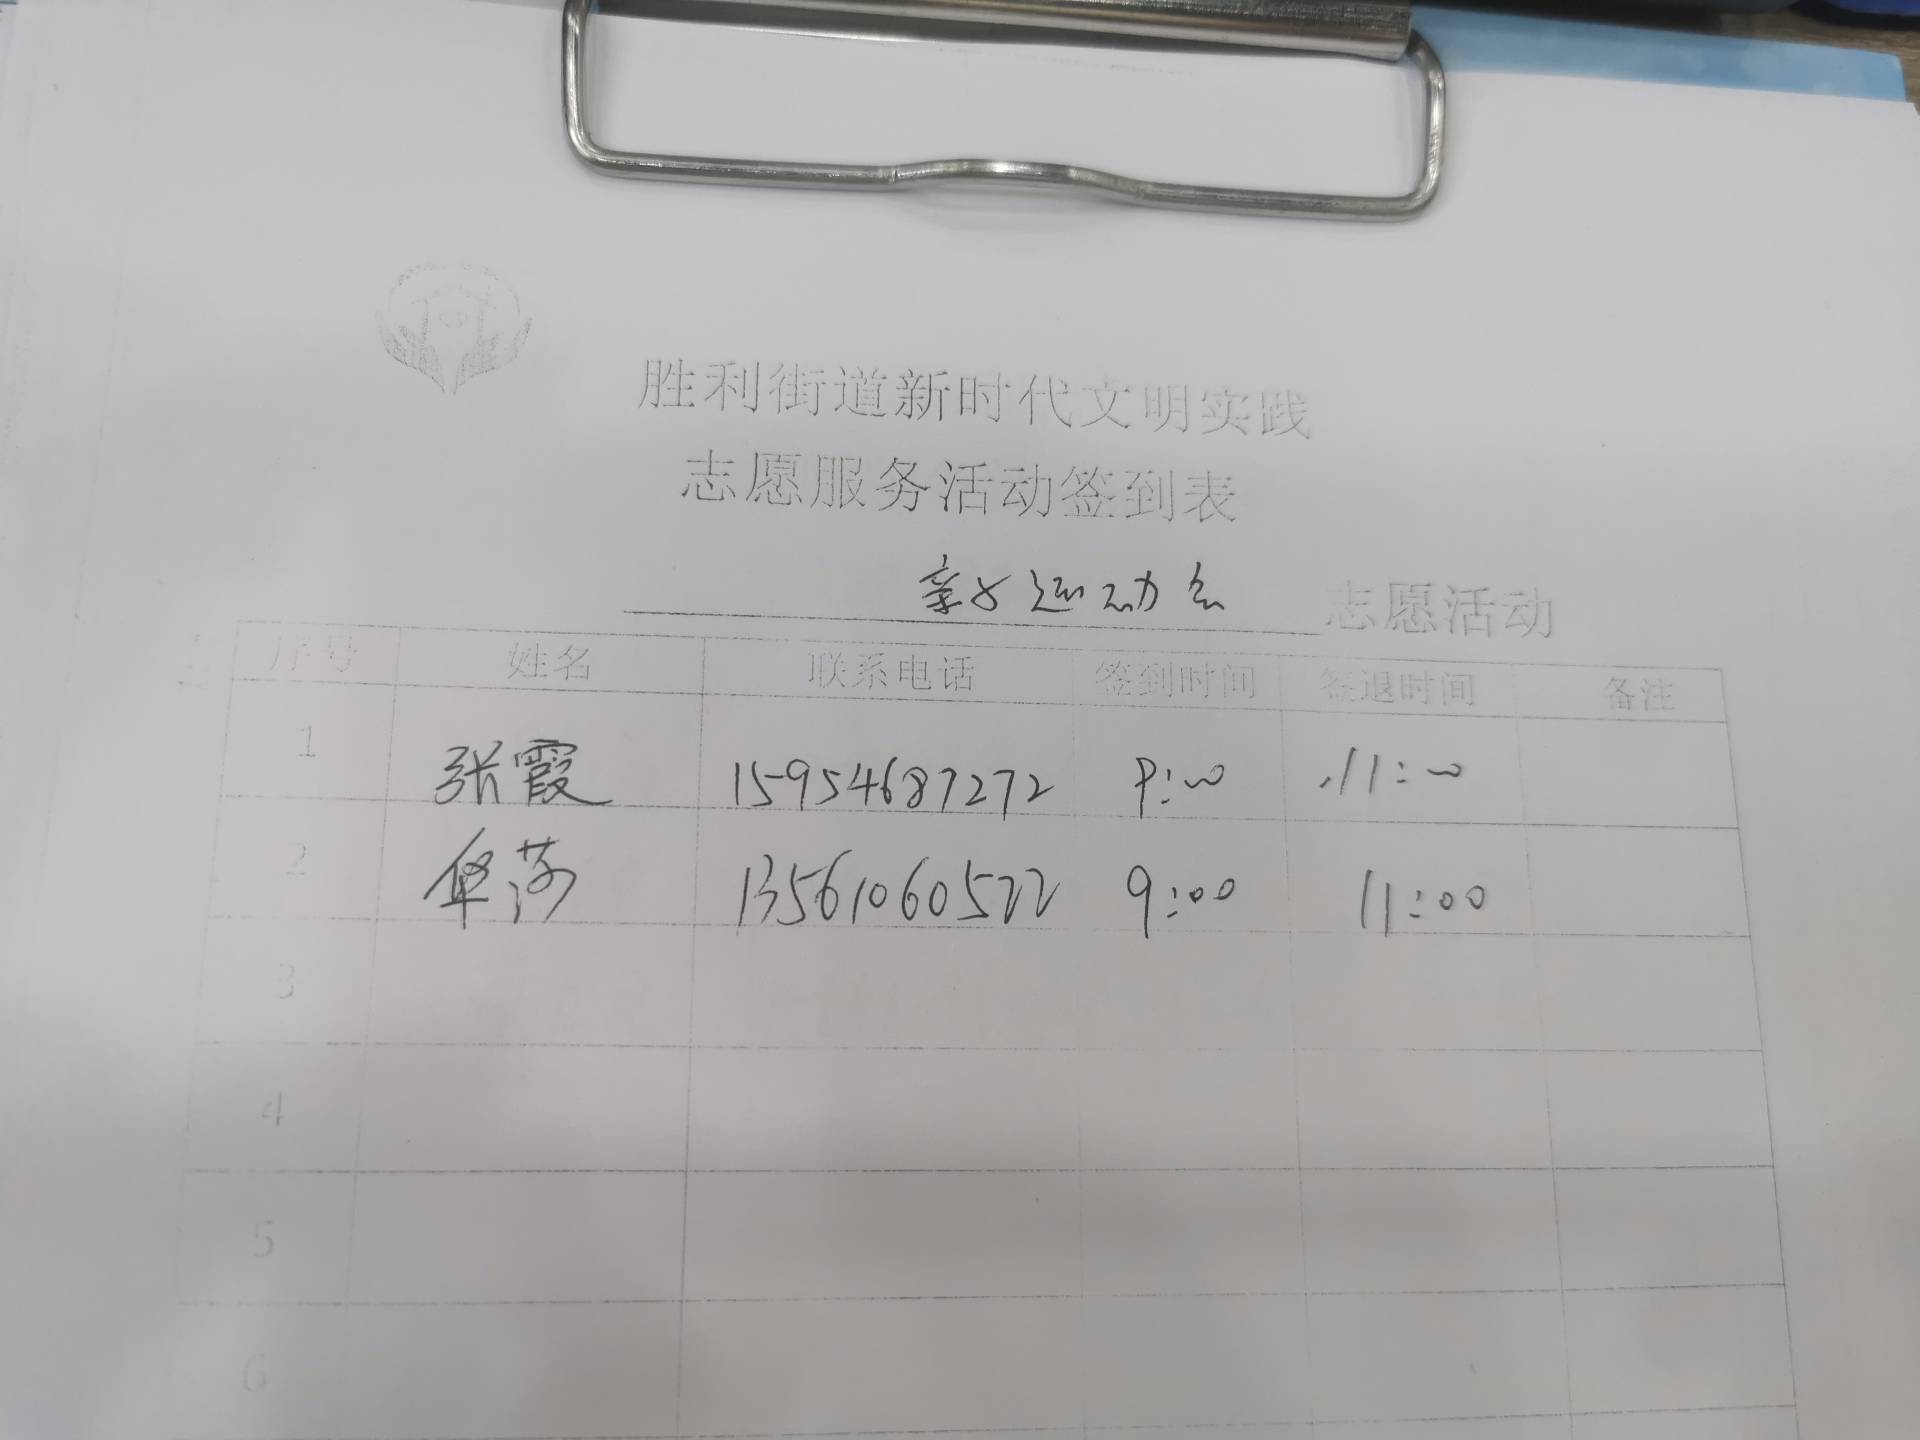 胜利街道新时代文明实践
志愿服务活动签到表
亲子运动会 志愿活动
序号 姓名 联系电话 签到时间 签退时间 备注
1 张霞 15954687272 9:00 11:00
2 莎 13561060522 9:00 11:00
3
4
5
6